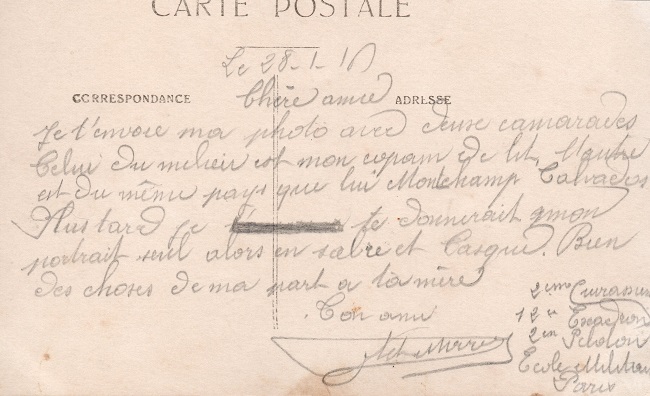 CARTE POSTALE
Le 28-1-1
CORRESPONDANCE
ADRESSE
Chère amie
Je t'envoie ma photo avec deux camarades
Celui du melieu est mon copain de lit, l'autre
est du même pays que lui Montchamp Calvados
Plus tard je Je donnerait mon
portrait seul alors en sabre et Casque. Bien
des choses de ma part a ta mère
Ton ami
2eme Cuirassier
12e Escadron
2em Peloton
Ecole Militaire
Paris